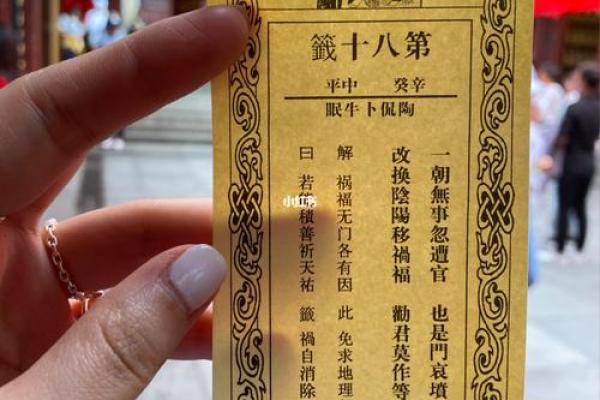 第八十籤
辛癸 中平
陶侃卜牛眠
一朝無事忽遭官 也是門哀墳
改換陰陽移禍福 勸君莫作等
解 祸福无门各有因 此 免求地理
曰 若 積善祈天祐 籤 禍自消除
小红书